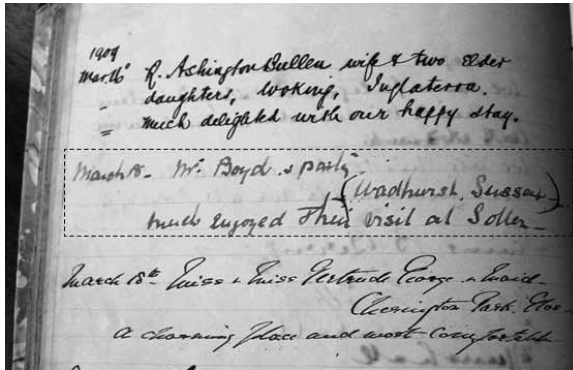 1909
March R. Ashington Bullen wife & two elder
daughters, Woking, Inglaterra.
" Much delighted with our happy stay.
March 18 - Mr. Boyd & party
(Wadhurst, Sussex)
much enjoyed their visit at Soller -
March 18th Miss & Miss Gertrude George & Maid -
Park. Glos -
a charming place and most comfortable